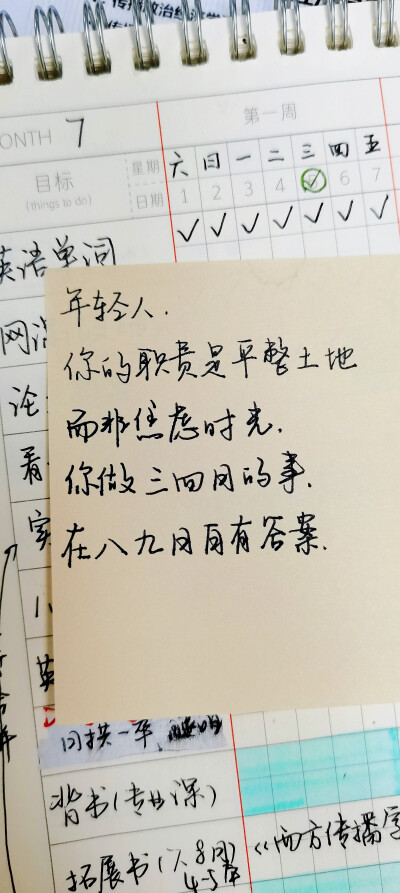 MONTH 7
第一周
目标
(things to do)
星期 六 日 一 二 三 四 五
日期 1 2 3 4 5 6 7
英语单词
网
论
看
年轻人.
你的职责是平整土地
而非焦虑时光.
你做三四月的事.
在八九月自有答案.
英
背书(专业课)
拓展书(入8月)
4-5本
《西方传播学